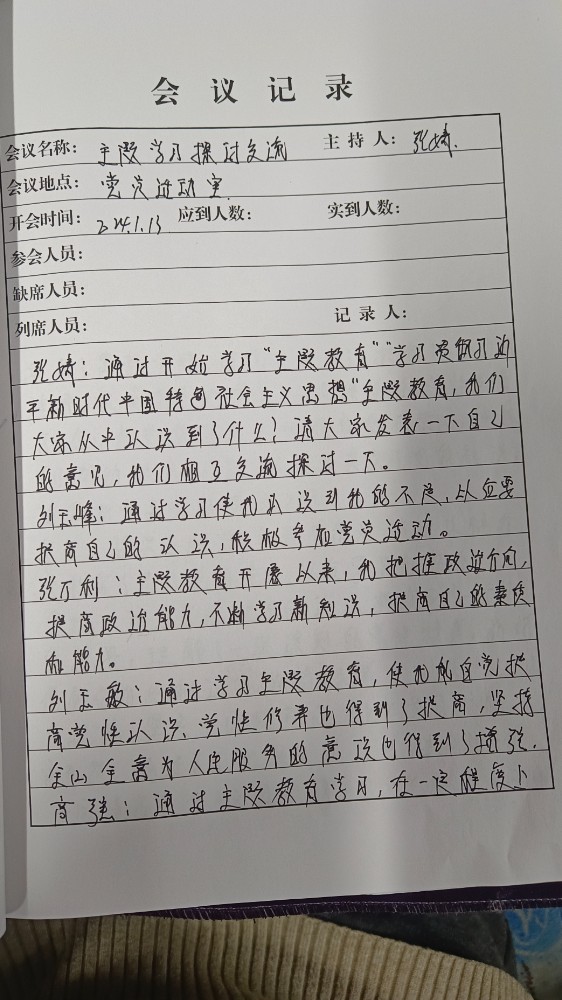 会议记录
会议名称： 主题学习探讨交流 主持人： 张婧
会议地点： 党员活动室
开会时间： 2024.1.13 应到人数： 实到人数：
参会人员：
缺席人员：
列席人员： 记录人：
张婧：通过开始学习“主题教育”“学习贯彻习近
平新时代中国特色社会主义思想”主题教育，我们
大家从中认识到了什么？请大家发表一下自己
的意见，我们相互交流探讨一下。
刘玉峰：通过学习使我认识到我的不足，以后要
提高自己的认识，积极参加党员活动。
张万利：主题教育开展以来，我把握政治方向，
提高政治能力，不断学习新知识，提高自己的素质
和能力。
刘玉敏：通过学习主题教育，使我能自觉提
高党性认识、党性修养也得到了提高，坚持
全心全意为人民服务的意识也得到了增强.
高强：通过主题教育学习，在一定程度上